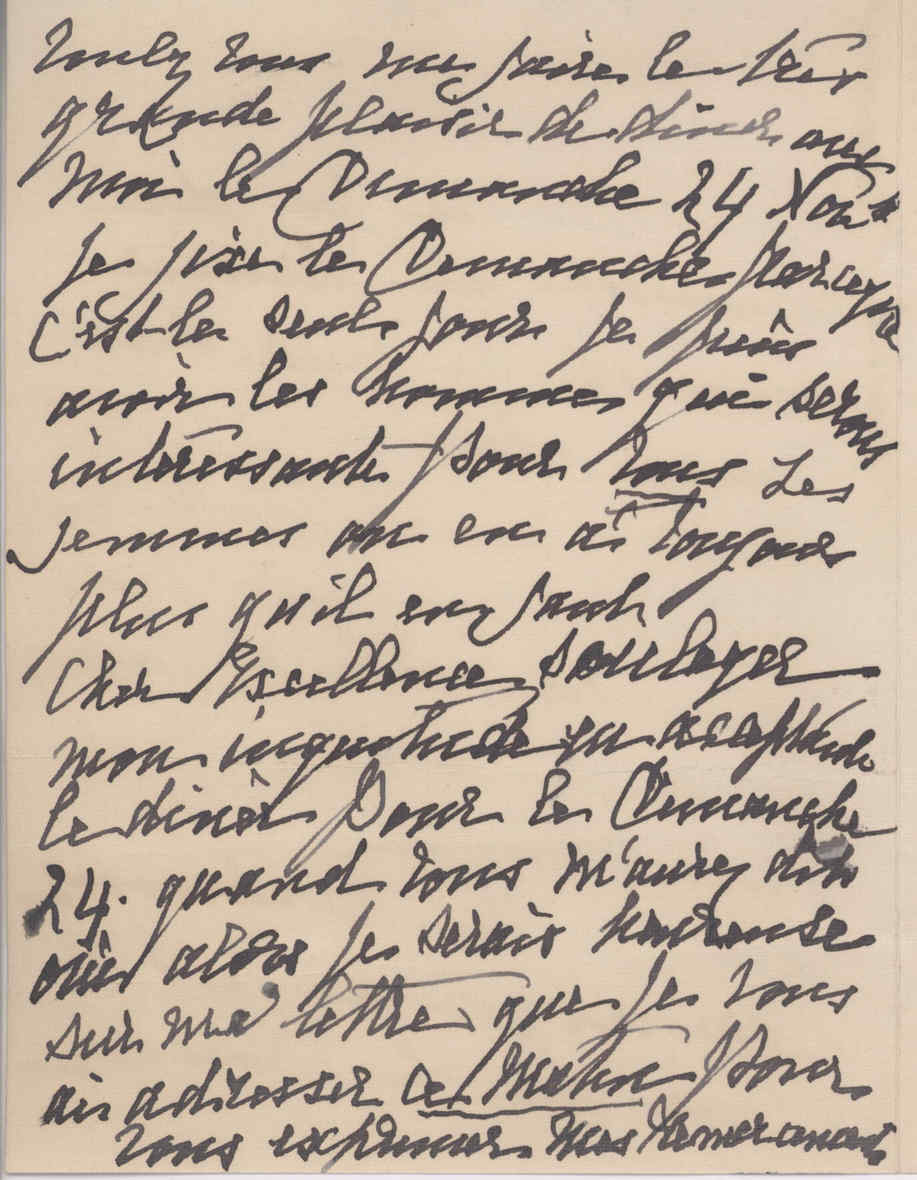 voulez vous me faire le très
grande plaisir de diner avec
moi le Dimanche 24 Nov
je fixe le Dimanche parceque
c'est le seul jour je puis
avoir les hommes qui serons
intéressante pour vous Les
femmes on en a toujours
plus qu'il en faut
Cher Excellence soulager
mon inquietude en acceptant
le dinèr pour le Dimanche
24. quand vous m'aurez dit
oui alors je serais heureuse
sur ma lettre que je vous
ai adresser ce Matin pour
vous exprimer mes